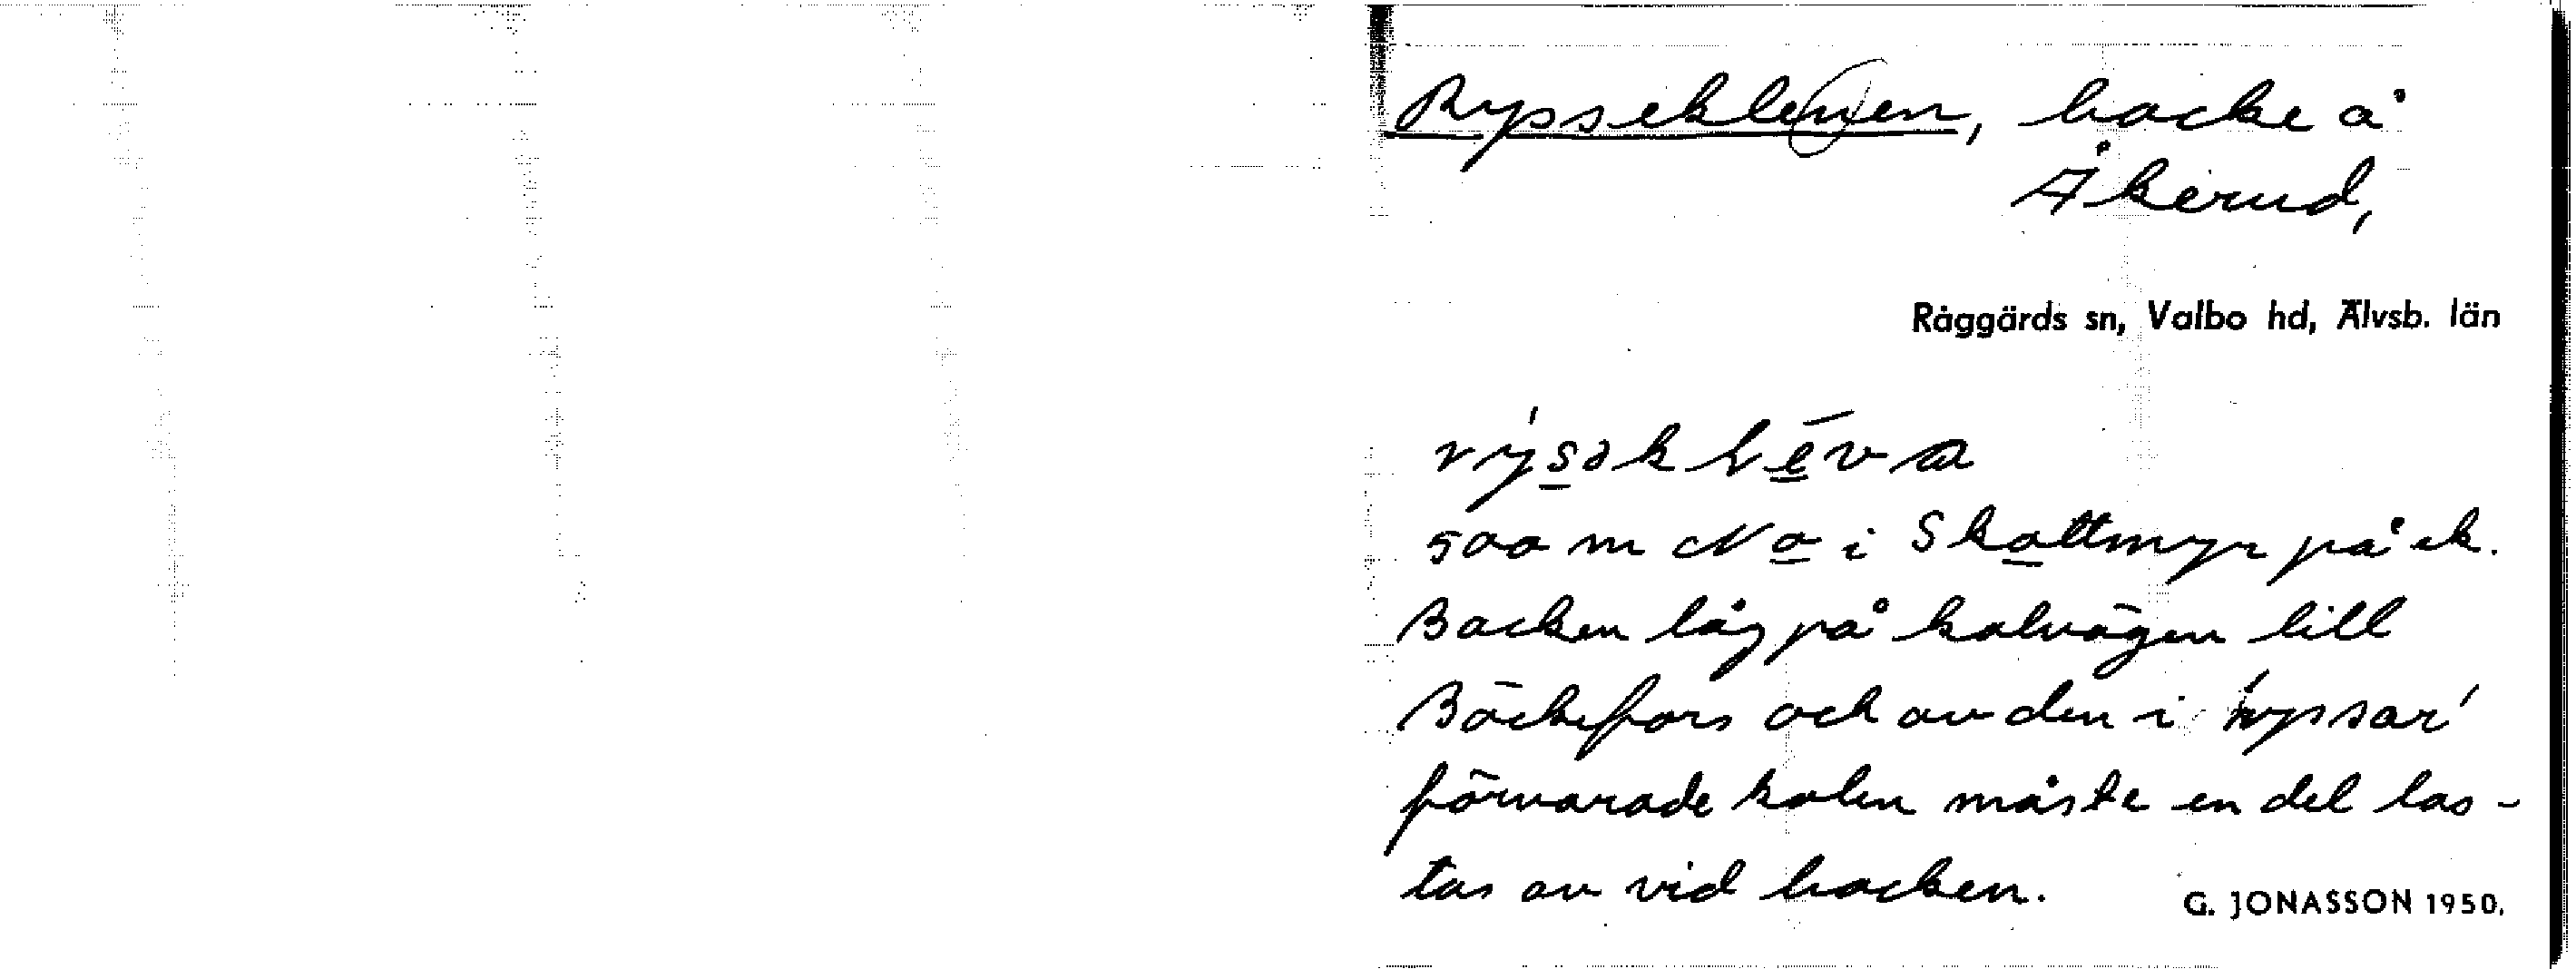 Ryssekleven, backe å
Åkerud,
Råggärds sn, Valbo hd, Älvsb. län
500 m No i Skottmyr på ek.
Backen låg på kolvägen till
Bäckefors och av den i 'ryssar'
förvarade kolen måste en del las-
tas av vid backen.
G. JONASSON 1950.